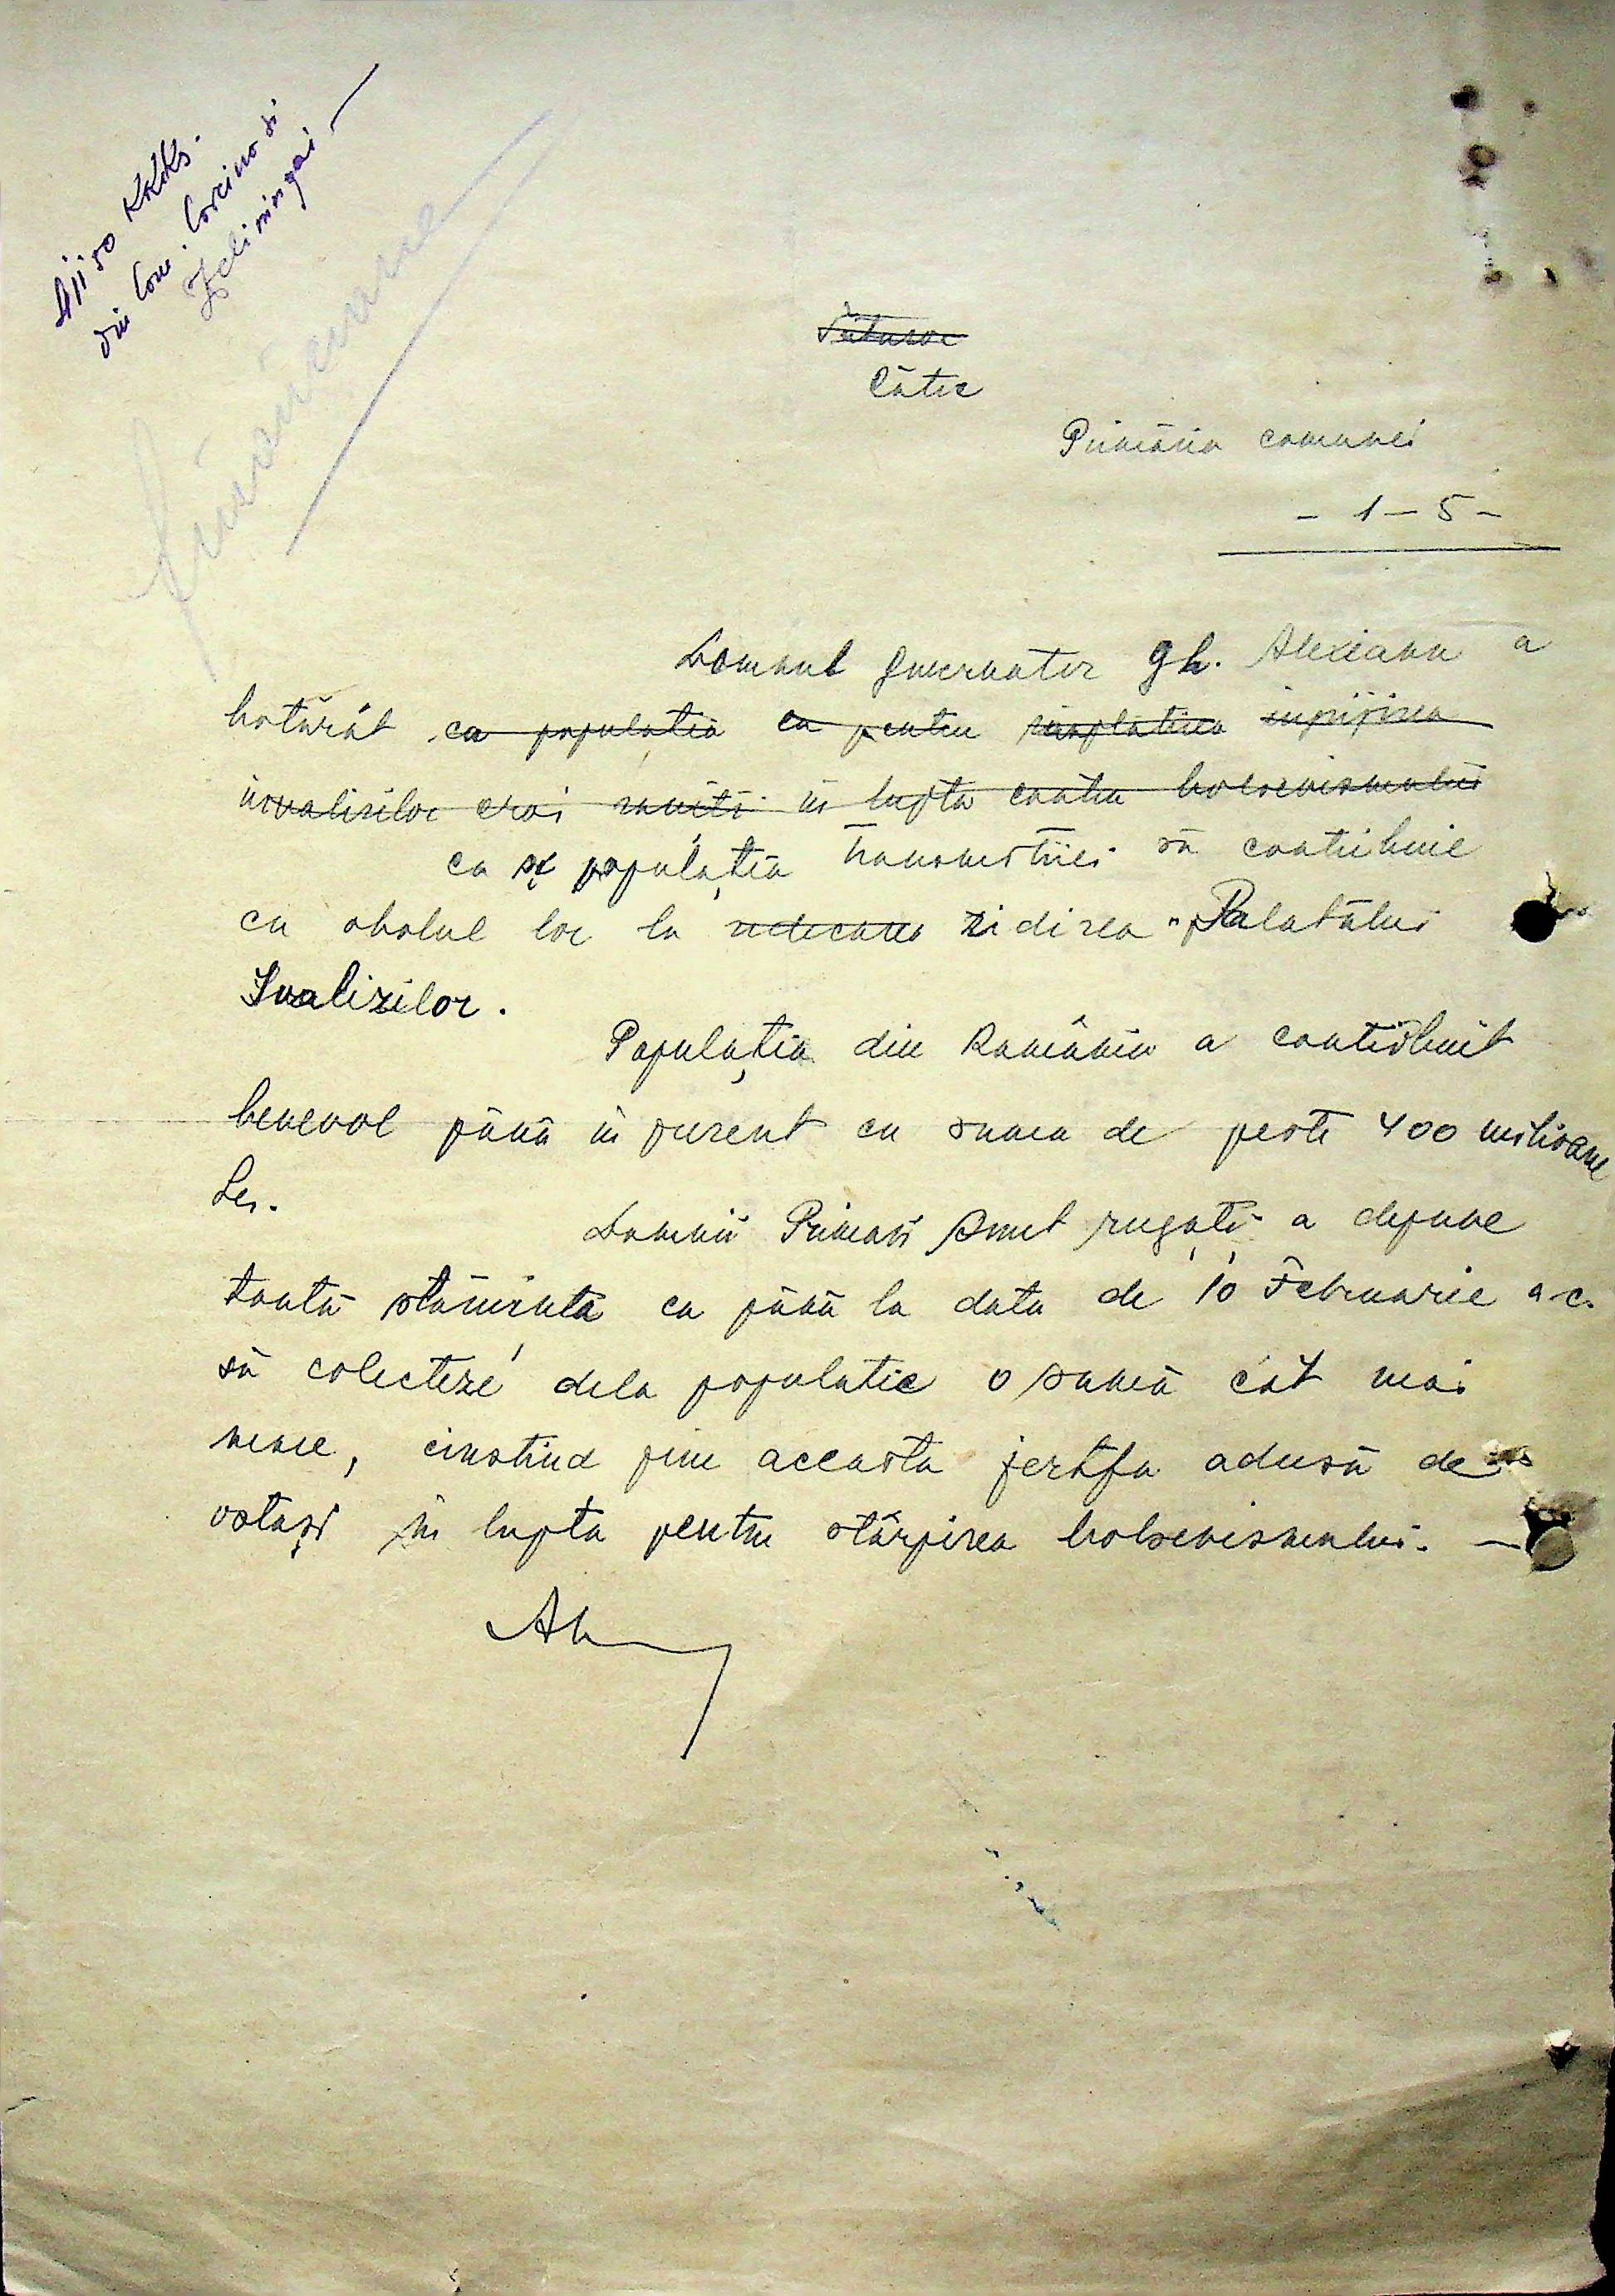 din Com.
Către
Primăria comunei
- 1 - 5 -
Domnul guvernator Gh. Alexianu a
hotărât ca populația ca pentru îngrijirea
invalizilor eroi răniți în lupta contra bolsevismului
ca și populația Transnistriei să contribuie
cu obolul lor la ridicarea zidirea "Palatului
Invalizilor.
Populația din România a contribuit
benevol până în prezent cu suma de peste 400 milioane
Lei.
Domnii Primari sunt rugați a depune
toată stăruința ca până la data de 10 Februarie a.c.
să colecteze dela populatie o sumă cât mai
mare, cinstind prin aceasta jertfa adusă de
ostași în lupta pentru stârpirea bolsevismului. —